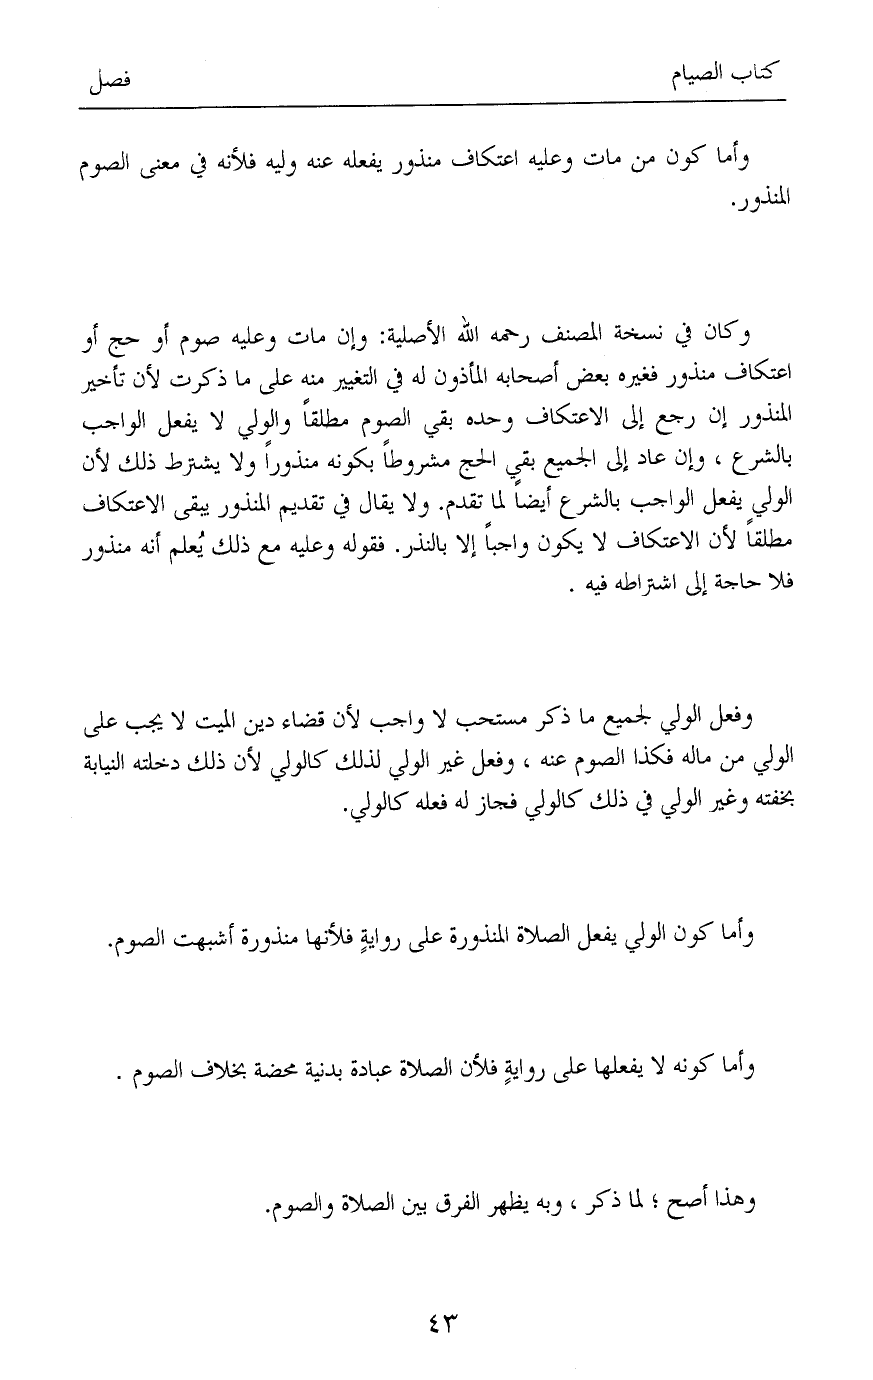 كتاب الصيام
فصل
وأما كون من مات وعليه اعتكاف منذور يفعله عنه وليه فلأنه في معنى الصوم
المنذور.
وكان في نسخة المصنف رحمه الله الأصلية: وإن مات وعليه صوم أو حج أو
اعتكاف منذور فغيره بعض أصحابه المأذون له في التغيير منه على ما ذكرت لأن تأخير
المنذور إن رجع إلى الاعتكاف وحده بقي الصوم مطلقاً والولي لا يفعل الواجب
بالشرع ، وإن عاد إلى الجميع بقي الحج مشروطاً بكونه منذوراً ولا يشترط ذلك لأن
الولي يفعل الواجب بالشرع أيضاً لما تقدم. ولا يقال في تقديم المنذور يبقى الاعتكاف
مطلقاً لأن الاعتكاف لا يكون واجباً إلا بالنذر. فقوله وعليه مع ذلك يُعلم أنه منذور
فلا حاجة إلى اشتراطه فيه .
وفعل الولي لجميع ما ذكر مستحب لا واجب لأن قضاء دين الميت لا يجب على
الولي من ماله فكذا الصوم عنه ، وفعل غير الولي لذلك كالولي لأن ذلك دخلته النيابة
بخفته وغير الولي في ذلك كالولي فجاز له فعله كالولي.
وأما كون الولي يفعل الصلاة المنذورة على روايةٍ فلأنها منذورة أشبهت الصوم.
وأما كونه لا يفعلها على روايةٍ فلأن الصلاة عبادة بدنية محضة بخلاف الصوم .
وهذا أصح ؛ لما ذكر ، وبه يظهر الفرق بين الصلاة والصوم.
٤٣